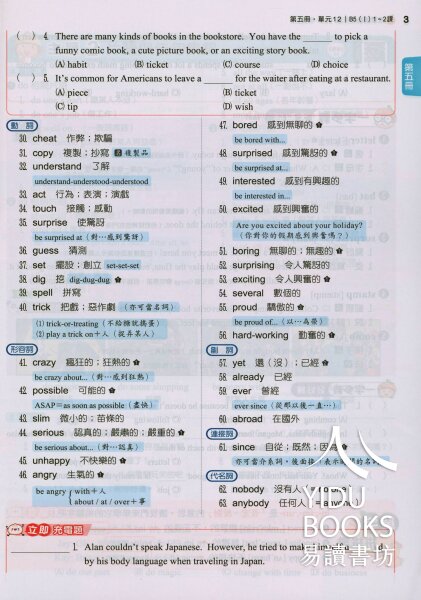 第五冊‧單元12 | B5 (I) 1~2課 3
第五冊
( ) 4. There are many kinds of books in the bookstore. You have the ____ to pick a
funny comic book, a cute picture book, or an exciting story book.
(A) habit (B) ticket (C) course (D) choice
( ) 5. It's common for Americans to leave a ____ for the waiter after eating at a restaurant.
(A) piece (B) ticket
(C) tip (D) wish
動 詞
30. cheat 作弊;欺騙
31. copy 複製;抄寫 複製品
32. understand 了解
understand-understood-understood
33. act 行為;表演;演戲
34. touch 接觸;感動
35. surprise 使驚訝
be surprised at (對…感到驚訝)
36. guess 猜測
37. set 擺設;創立 set-set-set
38. dig 挖 dig-dug-dug
39. spell 拼寫
40. trick 把戲;惡作劇 (亦可當名詞)
(1) trick-or-treating (不給糖就搗蛋)
(2) play a trick on+人 (捉弄某人)
形容詞
41. crazy 瘋狂的;狂熱的
be crazy about... (對…感到狂熱)
42. possible 可能的
ASAP=as soon as possible (盡快)
43. slim 微小的;苗條的
44. serious 認真的;嚴肅的;嚴重的
be serious about... (對…認真)
45. unhappy 不快樂的
46. angry 生氣的
be angry with+人
about / at / over+事
47. bored 感到無聊的
be bored with...
48. surprised 感到驚訝的
be surprised at...
49. interested 感到有興趣的
be interested in...
50. excited 感到興奮的
Are you excited about your holiday?
(你對你的假期感到興奮嗎?)
51. boring 無聊的;無趣的
52. surprising 令人驚訝的
53. exciting 令人興奮的
54. several 數個的
55. proud 驕傲的
be proud of... (以…為榮)
56. hard-working 勤奮的
副 詞
57. yet 還(沒);已經
58. already 已經
59. ever 曾經
ever since (從那以後一直…)
60. abroad 在國外
連接詞
61. since 自從;既然;因為
亦可當介系詞,後面接
代名詞
62. nobody 沒有人
63. anybody 任何人
YIDU
BOOKS
易讀書坊
立即充電題
____ 1. Alan couldn't speak Japanese. However, he tried to make himself u____d
by his body language when traveling in Japan.